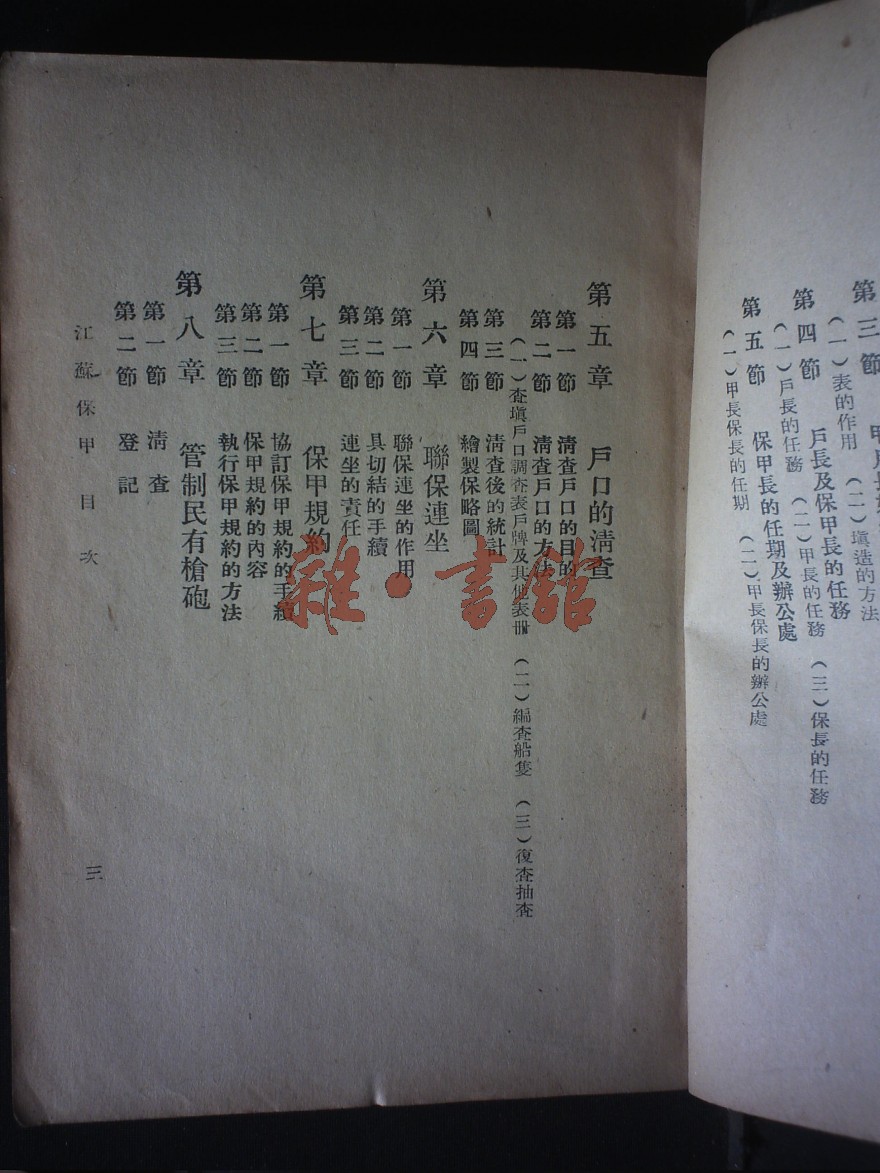 第三節
（一）表的作用　（二）塡造的方法
第四節　戶長及保甲長的任務
（一）戶長的任務　（二）甲長的任務　（三）保長的任務
第五節　保甲長的任期及辦公處
（一）甲長保長的任期　（二）甲長保長的辦公處
第五章　戶口的淸查
第一節　淸查戶口的目的
第二節　淸查戶口的方法
（一）查塡戶口調查表戶牌及其他表冊　（二）編查船隻　（三）復查抽查
第三節　淸查後的統計
第四節　繪製保略圖
第六章　聯保連坐
第一節　聯保連坐的作用
第二節　具切結的手續
第三節　連坐的責任
第七章　保甲規約
第一節　協訂保甲規約的手續
第二節　保甲規約的內容
第三節　執行保甲規約的方法
第八章　管制民有槍砲
第一節　淸查
第二節　登記
江蘇保甲目次
三
雜·書館